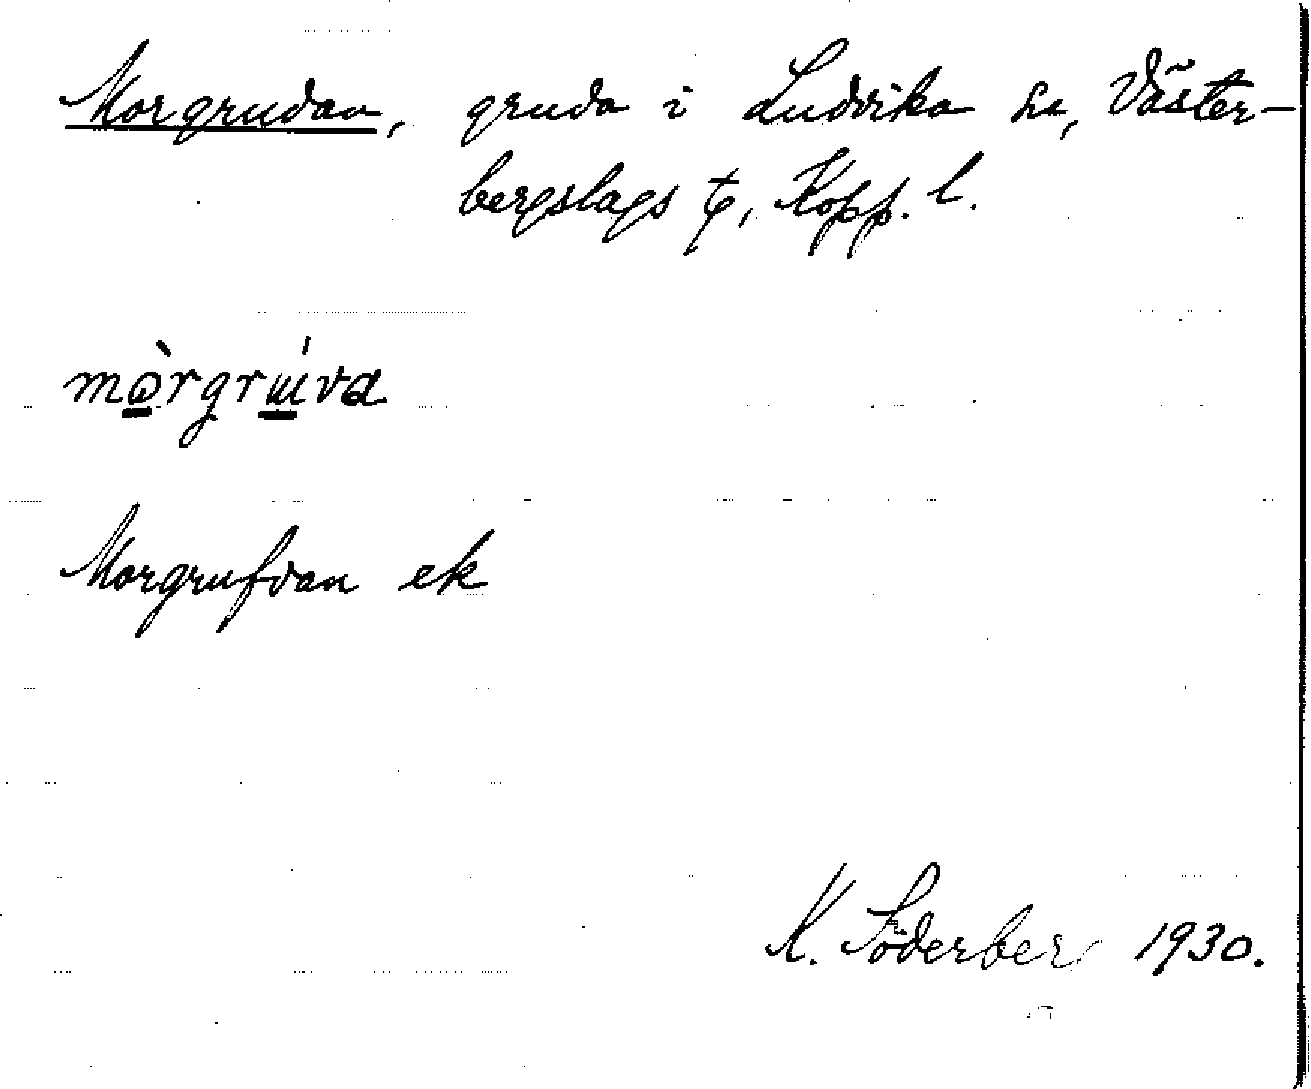 Morgruvan, gruva i Ludvika sn, Väster-
bergslags tg, Kopp. l.
mòrgrɯ́va
Morgrufvan ek
K. Söderberg 1930.